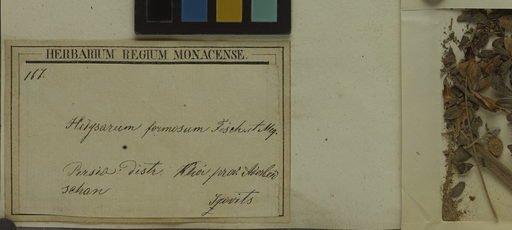 HERBARIUM REGIUM MONACENSE.
167.
Hedysarum formosum Fisch et Mey.
Persia distr. Khoi prov. Aderbei
schan
Szovits